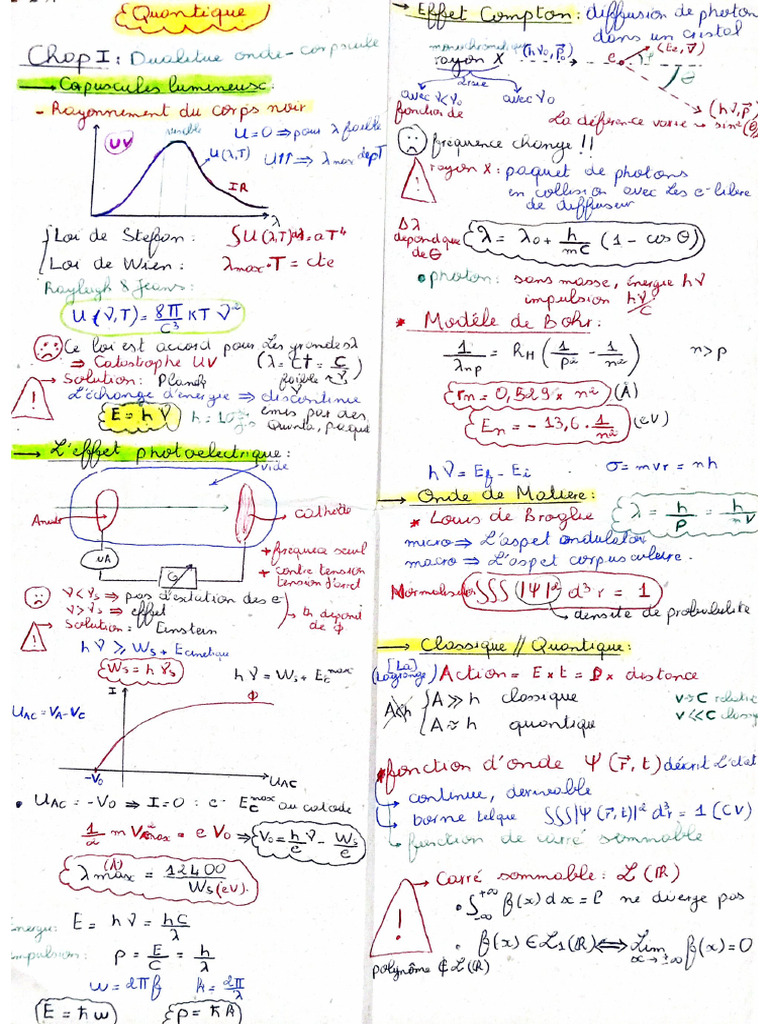 Quantique
Chap I: Dualitue onde-corpscule
→ Corpuscules lumineux:
- Rayonnement du corps noir
UV
visible
IR
U(λ,T)
λ
U=0 ⇒ pour λ faible
U↑↑ ⇒ λmax dep T
Loi de Stefan: ∫U(λ,T)dλ = aT⁴
Loi de Wien: λmax·T = cte
Rayleigh & Jeans:
U(ν,T) = 8π/C³ KT ν²
Ce loi est accord pour les grandes λ
⇒ Catastrophe UV (λ = cT = c/ν)
faible
→ Solution: Planck
L'échange d'énergie ⇒ discontinue
E = hν
émis par des
Quanta, paquet
→ L'effet photoelectrique:
vide
Anode
cathode
UA
G
+ frequence seuil
+ contre tension
tension d'arret
ν<νs ⇒ pas d'extation des e-
ν>νs ⇒ effet
de Φ
→ Solution: Einstein
hν ⩾ Ws + Ecinetique
Ws = hνs
hν = Ws + Ec max
I
Φ
UAC = VA-VC
-V0
UAC
• UAC = -V0 ⇒ I=0 : e- Ec max au catode
1/2 m V²max = e V0 ⇒ V0 = h/e ν - Ws/e
λmax (Å) = 12400/Ws(eV)
Énergie: E = hν = hc/λ
impulsion: p = E/C = h/λ
ω = 2πf k = 2π/λ
E = ħω p = ħk
→ Effet Compton: diffusion de photon
dans un cristal
monochromatique
rayon X (hν0, p⃗0) e- (Ec, v⃗)
φ
θ
2 raie
(hν, p⃗)
avec ν<ν0 avec ν0
fonction de
La déférence varie → sin²(θ
fréquence change !!
rayon X: paquet de photons
en collision avec les e- libre
de diffuseur
Δλ
depend que
de θ
λ = λ0 + h/mC (1 - cos θ)
• photon: sans masse, énergie hν
impulsion hν/C
* Modéle de Bohr:
1/λnp = RH (1/p² - 1/n²) n>p
rn = 0,529 × n² (Å)
En = -13,6 · 1/n² (eV)
hν = Ef - Ei σ = mvr = nh
→ Onde de Matiere:
* Louis de Broglie
λ = h/p = h/mV
micro ⇒ L'aspet ondulator
macro ⇒ L'aspet corpusculaire.
Normalisation ∫∫∫|Ψ|² d³r = 1
→ densite de probabulite
→ Classique // Quantique:
[La]
(Lagrange) Action = E×t = p× distance
A≫h classique
A≈h quantique
A<h
v→C relative
v≪C classiq
* fonction d'onde Ψ(r⃗,t) décrit l'état
continue, derivable
borne telque ∫∫∫|Ψ(r⃗,t)|² d³r = 1 (CV)
fonction de carré sommable
→ Carré sommable: L(ℝ)
• ∫₋∞⁺∞ f(x)dx = l ne diverge pas
• f(x) ∈ L1(ℝ) ⟺ Lim x→±∞ f(x) = 0
polynôme ∉ L(ℝ)